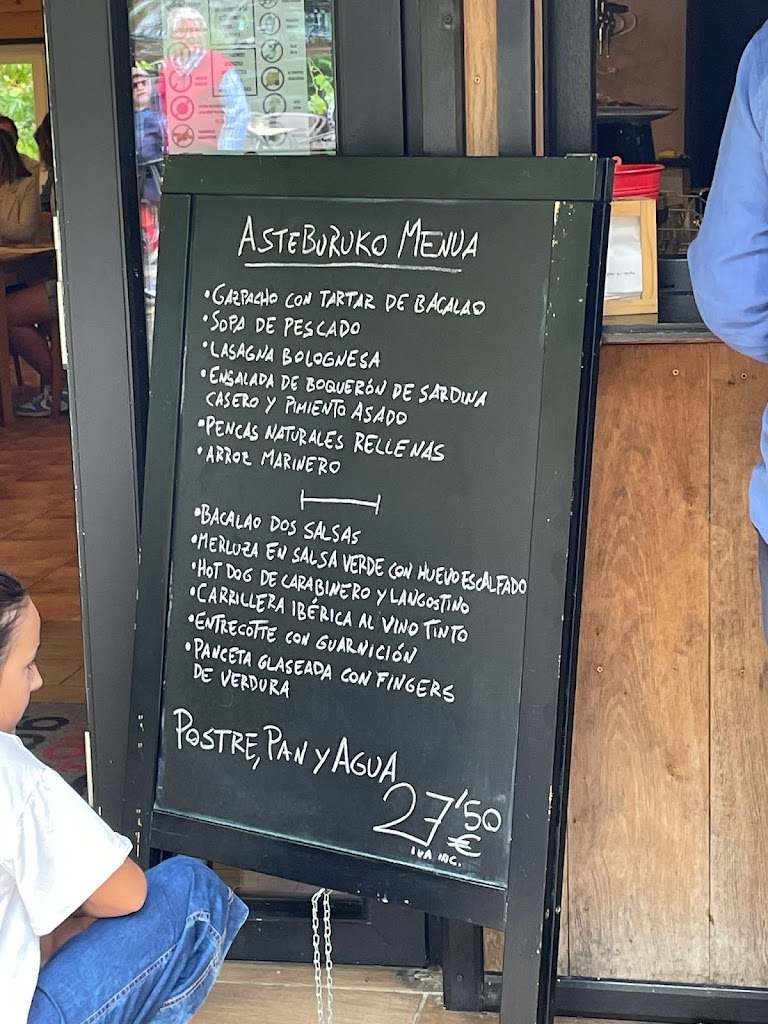 ASTEBURUKO MENUA
•GAZPACHO CON TARTAR DE BACALAO
•SOPA DE PESCADO
•LASAGNA BOLOGNESA
•ENSALADA DE BOQUERÓN DE SARDINA
CASERO Y PIMIENTO ASADO
•PENCAS NATURALES RELLENAS
•ARROZ MARINERO
•BACALAO DOS SALSAS
•MERLUZA EN SALSA VERDE CON HUEVO ESCALFADO
•HOT DOG DE CARABINERO Y LANGOSTINO
•CARRILLERA IBÉRICA AL VINO TINTO
•ENTRECOTTE CON GUARNICIÓN
•PANCETA GLASEADA CON FINGERS
DE VERDURA
POSTRE, PAN Y AGUA
27'50 €
IVA INC.